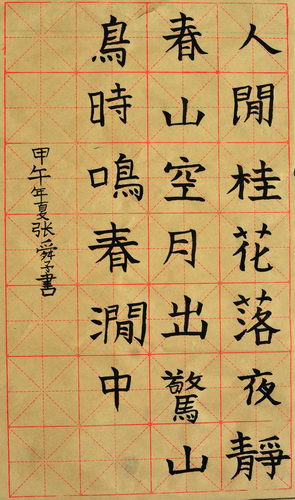 人閒桂花落夜靜
春山空月出驚山
鳥時鳴春澗中
甲午年夏张舜子書